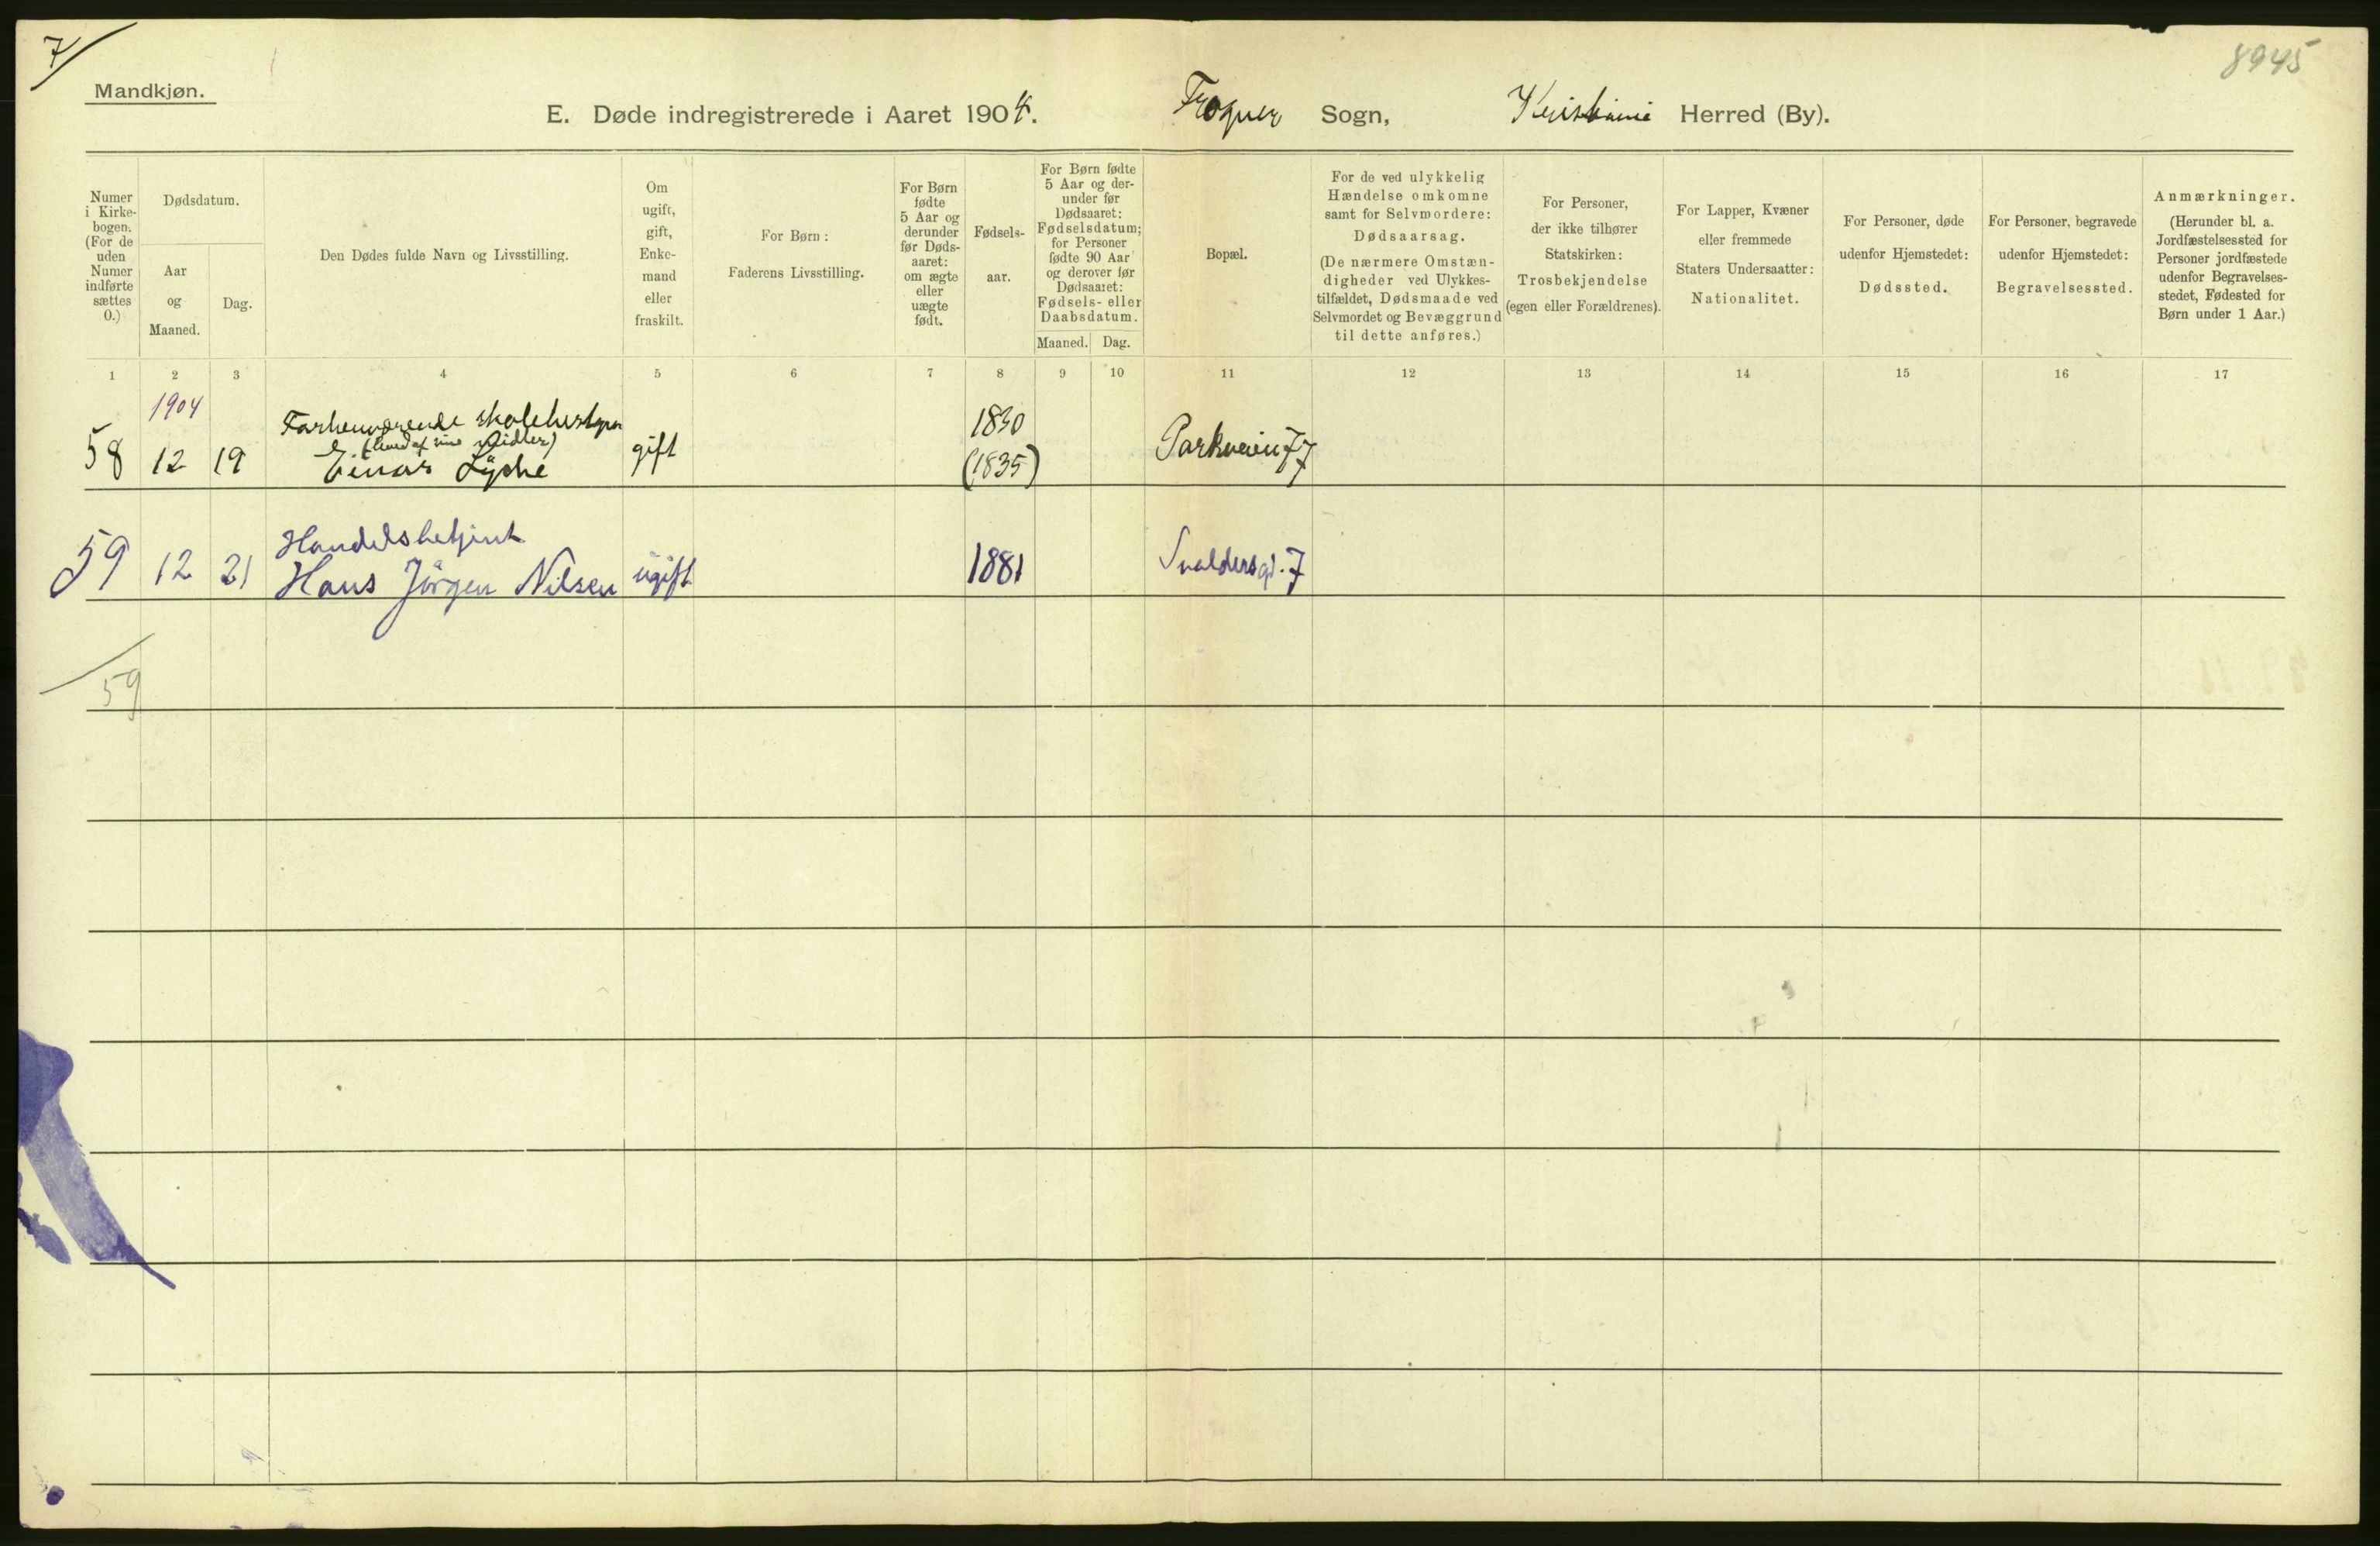 7/
8945
Mandkjøn.
E. Døde indregistrerede i Aaret 1904. Frogner Sogn, Kristiania Herred (By).
Numer i Kirkebogen. (For de uden Numer indførte sættes 0.)
Dødsdatum.
Aar og Maaned.
Dag.
Den Dødes fulde Navn og Livsstilling.
Om ugift, gift, Enkemand eller fraskilt.
For Børn: Faderens Livsstilling.
For Børn fødte 5 Aar og derunder før Dødsaaret: om ægte eller uægte født.
Fødselsaar.
For Børn fødte 5 Aar og derunder før Dødsaaret: Fødselsdatum; for Personer fødte 90 Aar og derover før Dødsaaret: Fødsels- eller Daabsdatum.
Maaned. Dag.
Bopæl.
For de ved ulykkelig Hændelse omkomne samt for Selvmordere: Dødsaarsag. (De nærmere Omstændigheder ved Ulykkestilfældet, Dødsmaade ved Selvmordet og Bevæggrund til dette anføres.)
For Personer, der ikke tilhører Statskirken: Trosbekjendelse (egen eller Forældrenes).
For Lapper, Kvæner eller fremmede Staters Undersaatter: Nationalitet.
For Personer, døde udenfor Hjemstedet: Dødssted.
For Personer, begravede udenfor Hjemstedet: Begravelsessted.
Anmærkninger. (Herunder bl. a. Jordfæstelsessted for Personer jordfæstede udenfor Begravelsesstedet, Fødested for Børn under 1 Aar.)
1 2 3 4 5 6 7 8 9 10 11 12 13 14 15 16 17
1904
Forhenværende skolebestyrer 1830
(Lever af sine Midler)
58 12 19 Einar Lyche gift (1835) Parkveien 77
Handelsbetjent
59 12 21 Hans Jörgen Nilsen ugift 1881 Svoldersgd. 7
59